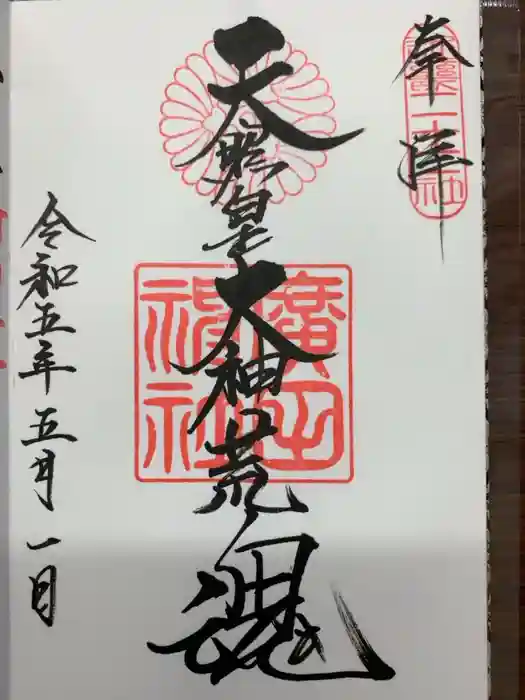 奉拝
天照皇大神荒魂
廣田
神社
令和五年五月一日